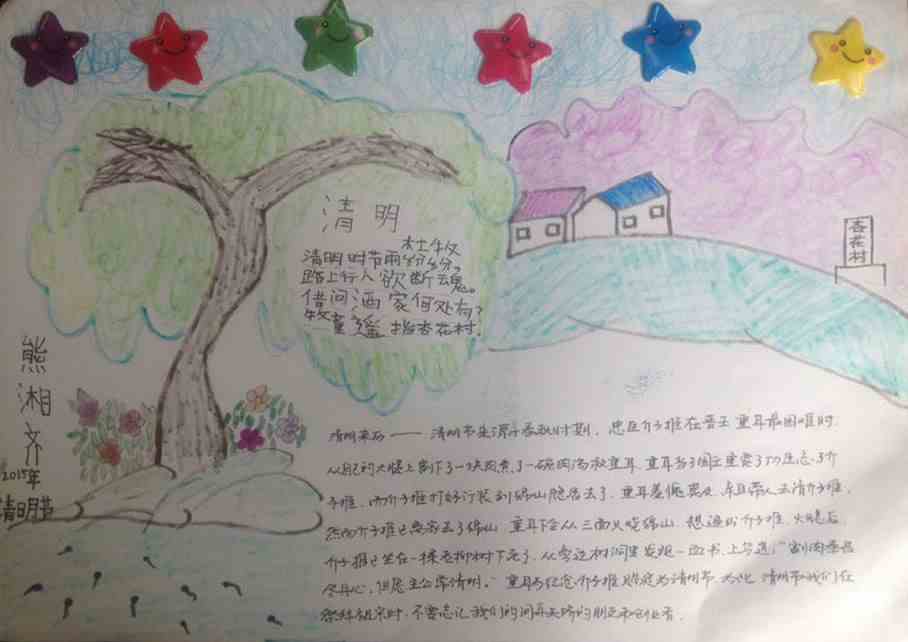 清明
杜牧
清明时节雨纷纷。
路上行人欲断魂。
借问酒家何处有?
牧童遥指杏花村.
杏花村
熊湘齐
2015年
清明节
清明来历——清明节是源于春秋时期,忠臣介子推在晋王重耳最困难时
从自己的大腿上割下了一块肉煮了一碗肉汤救重耳.重耳当了国王重赏了功臣忘了介
子推,而介子推打好行装到绵山隐居去了.重耳羞愧莫及,亲自带人去请介子推,
然而介子推已离家去了绵山.重耳下令从三面火烧绵山.想逼出介子推.火熄后,
介子推已坐在一棵老柳树下死了.从旁边树洞里发现一血书,上写道:"割肉奉君
尽丹心,但愿主公常清明。"重耳为纪念介子推将定为清明节 为此 清明节我们在
祭拜祖宗时,不要忘记我们的